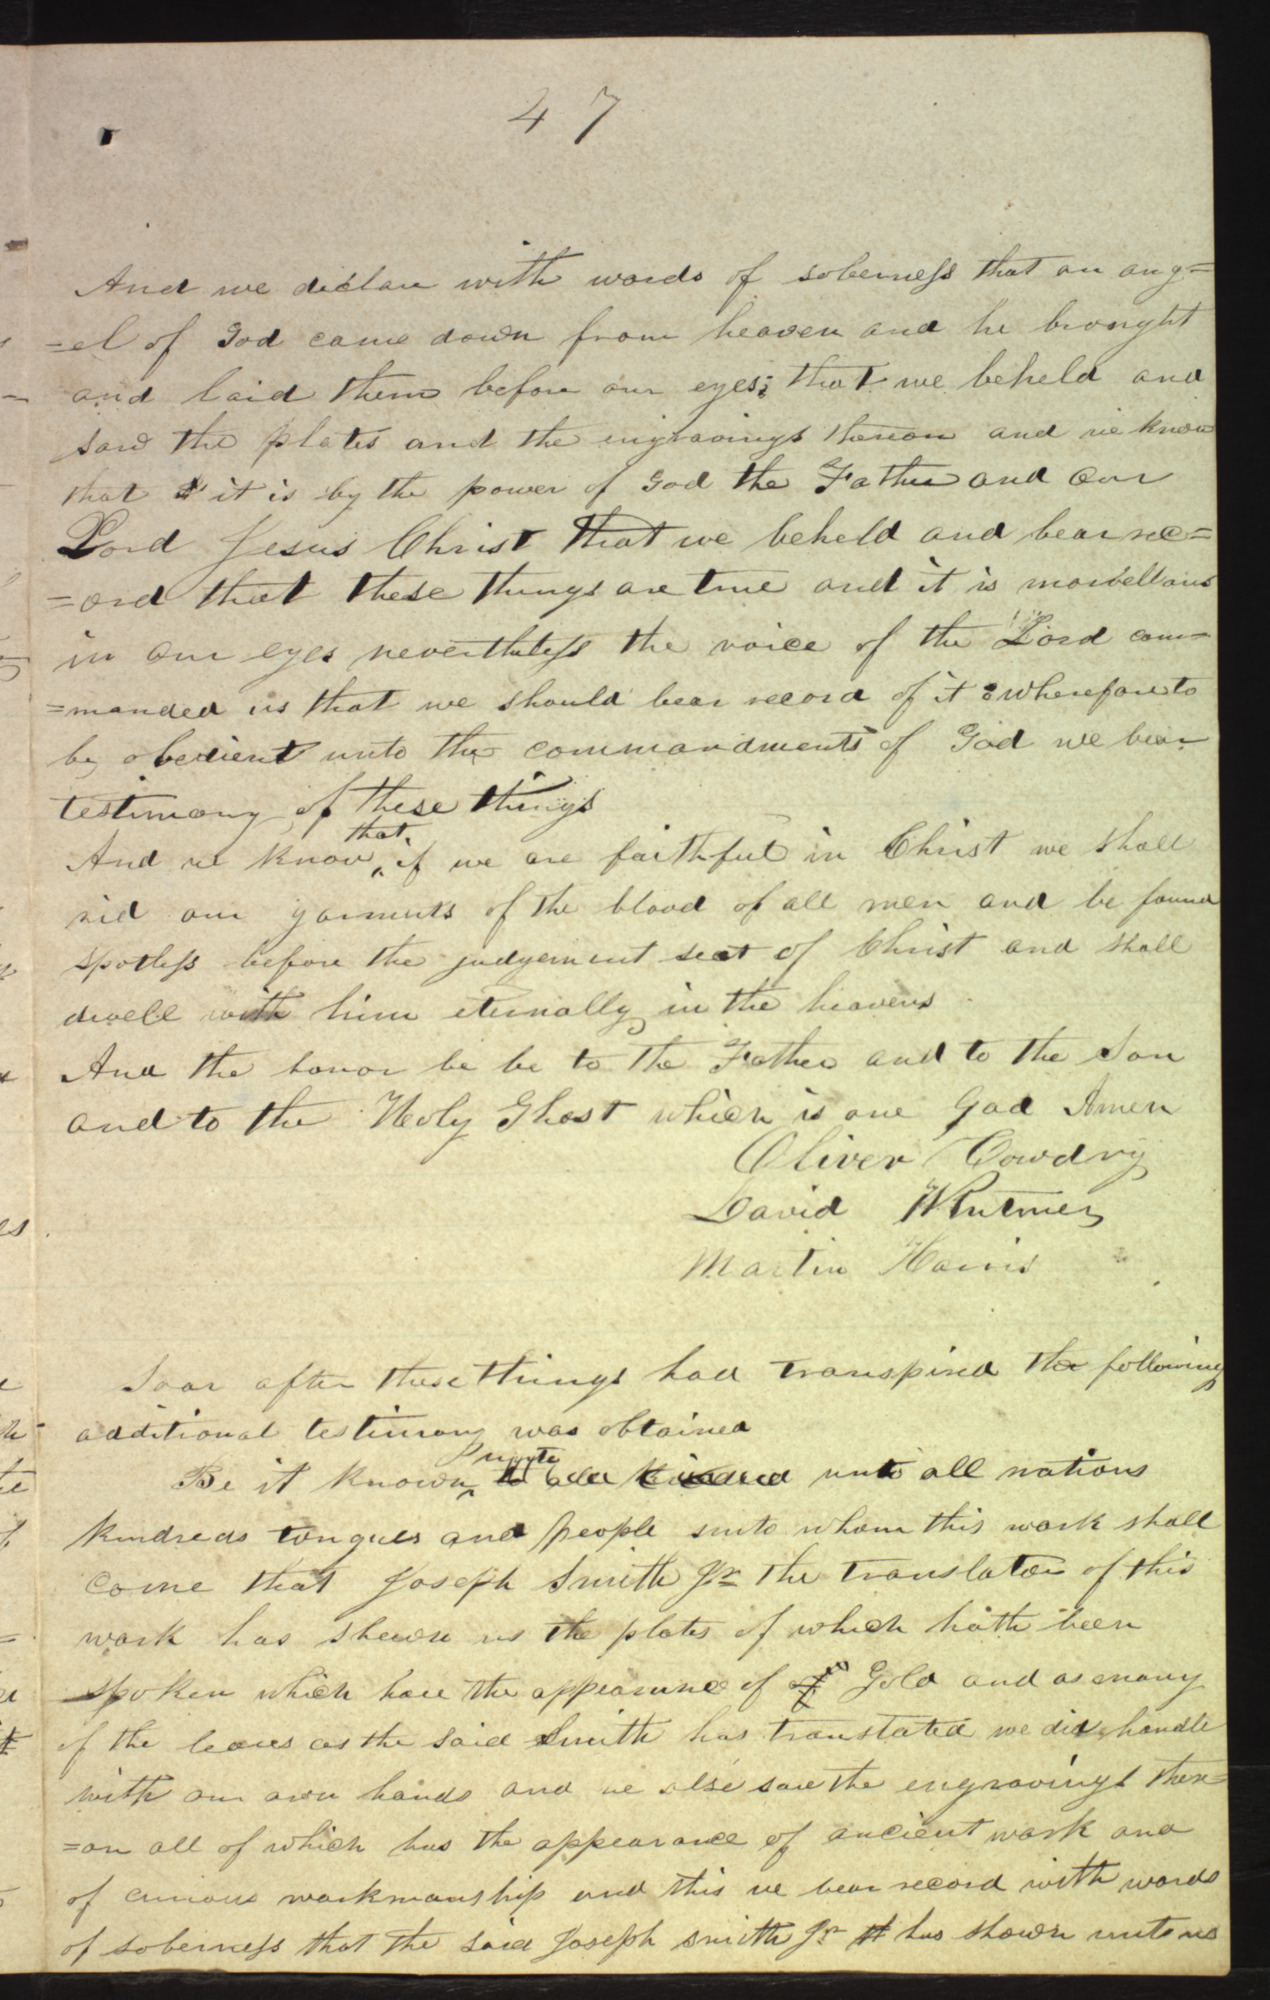 47
And we declare with words of soberness that an ang=
=el of God came down from heaven and he brought
and laid them before our eyes; that we beheld and
saw the plates and the engravings thereon and we know
that it is by the power of God the Father and our
Lord Jesus Christ that we beheld and bear rec=
=ord that these things are true and it is marvellous
in our eyes nevertheless the voice of the Lord com=
=manded us that we should bear record of it wherefore to
be obedient unto the commandments of God we bear
testimony of these things
And we know that if we are faithful in Christ we shall
rid our garments of the blood of all men and be found
spotless before the judgement seat of Christ and shall
dwell with him eternally in the heavens
And the honor be be to the Father and to the Son
and to the Holy Ghost which is one God Amen
Oliver Cowdry
David Whitmer
Martin Harris
Soon after these things had transpired the following
additional testimony was obtained
Be it known to all kindred unto all nations
kindreds tongues and people unto whom this work shall
come that Joseph Smith Jr the translator of this
work has shewn us the plates of which hath been
spoken which have the appearance of Gold and as many
of the leaves as the said Smith has translated we did handle
with our own hands and we also saw the engravings there=
=on all of which has the appearance of ancient work and
of curious workmanship and this we bear record with words
of soberness that the said Joseph Smith Jr has shown unto us